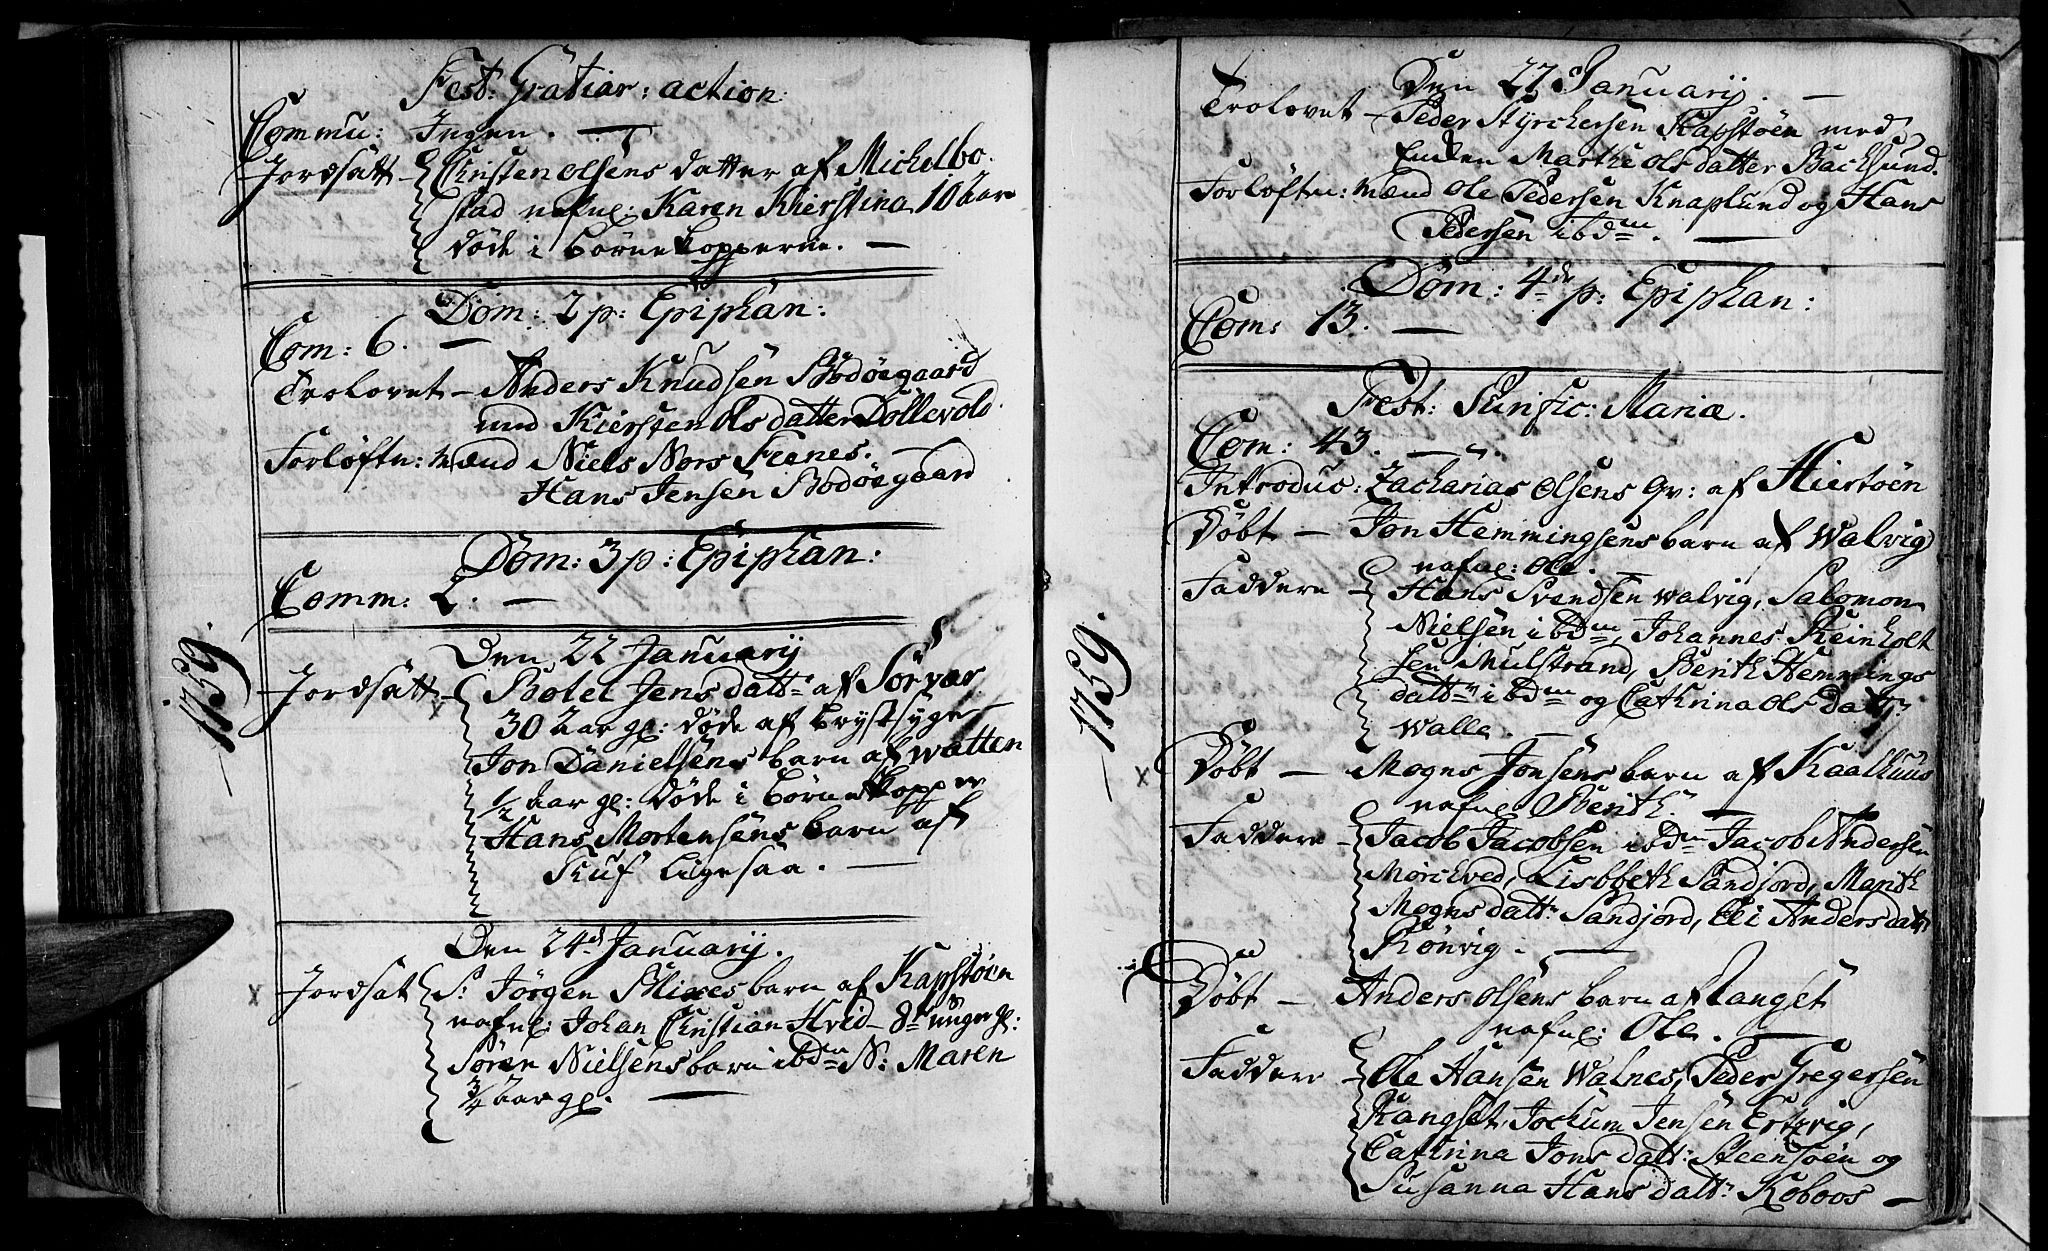 Fest: Gratiar: action:
Commu: Ingen. —
Jordsatt — Christen Olsens datter af Michelbo-
stad nafnl: Karen Kierstina 10 Aar
døde i børnekopperne. —
Dom: 2 p: Epiphan:
Com: 6. —
Trolovet — Anders Knudsen Bodøegaard
med Kiersten Olsdatter Dollevold.
Forløftn: mænd Niels Nors Fienes. —
Hans Jensen Bodøegaard
Dom: 3 p: Epiphan:
Comm: 2. —
1759.
Den 22 Januarij
Jordsatt — Bolel Jensdattr af Sørvær
30 Aar gl: døde af brystsyge
Jon Danielsens barn af Watten
1/2 Aar gl: døde i børnekopper
Hans Mortensens barn af
Skuf ligesaa. —
Den 24d Januarij.
Jordsat S: Jørgen Blixes barn af Kapstøen
nafnl: Johan Christian Hvid — 8t uuger gl:
Søren Nielsens barn ibdm N: Maren
3/4 Aar gl. —
Den 27 Januarij. —
Trolovet — Peder Styrchersen Kapstøen med
Enken Marthe Olsdatter Backsund.
Forløftn: mænd Ole Pedersen Knaplund og Hans
Pedersen ibdm. —
Dom: 4de p: Epiphan:
Com: 13. —
Fest: Purific: Mariæ.
Com: 43. —
Introduc: Zacharias Olsens Qv: af Hiertøen
1759.
Døbt — Jon Hemmingsens barn af Walvig
nafnl: Ole. —
Faddere — Hans Svendsen Walvig, Salomon
Nielsen ibdm, Johannes Reinholt
sen Mulstrand, Berith Hemmings
dattr ibdm og Cathrina Olsdattr
Walle. —
Døbt — Mogns Jonsens barn af Kaalhuus
nafnl Berith —
Faddere — Jacob Jacobsen ibdm Jacob Andersen
Mörchved, Lisbbeth Sandjord, Marith
Mognsdattr Sandjord, Eli Andersdattr
Rönvig. —
Døbt — Anders Olsens barn af Rangset
nafnl: Ole. —
Faddere — Ole Hansen Walnes, Peder Gregersen
Rangset, Jochum Jensen Ertzvig,
Cathrina Jonsdatt: Steensøen og
Susanna Hansdattr Koboos —